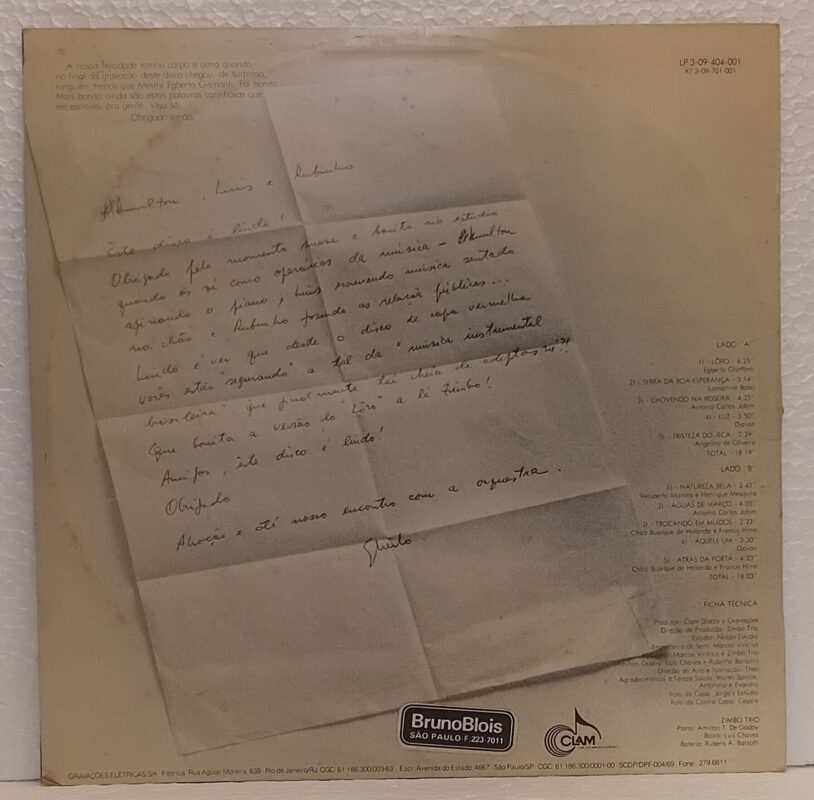 A nossa felicidade tomou corpo e alma quando
no final da gravação deste disco chegou, de surpresa,
ninguém menos que Mestre Egberto Gismonti. Foi bonito.
Mais bonito ainda são estas palavras carinhosas que
ele escreveu prá gente. Veja só.
Obrigado irmão.
LP 3-09-404-001
K7 3-09-701-001
Hamilton, Luis e Rubinho
Êste disco é lindo!
Obrigado pelo momento suave e bonito no estúdio
quando os vi como operários da música - Hamilton
afinando o piano, Luis escrevendo música sentado
no chão e Rubinho fazendo as relações públicas...
Lindo é ver que desde o disco de capa vermelha
vocês estão "segurando" a tal da "música instrumental
brasileira", que finalmente tai cheia de adeptos né?!
Que bonita a versão do "Lôro" a lá Zimbo!
Amigos, êste disco é lindo!
Obrigado
Abração e até nosso encontro com a orquestra.
LADO "A"
1) - LÔRO - 4.25"
Egberto Gismonti
2) - SERRA DA BOA ESPERANÇA - 3.14"
Lamartine Babo
3) - CHOVENDO NA ROSEIRA - 4.25"
Antonio Carlos Jobim
4) - LUZ - 3.50"
Djavan
5) - TRISTEZA DO JECA - 2.39"
Angelino de Oliveira
TOTAL - 18.19"
LADO "B"
1) - NATUREZA BELA - 3.43"
Felisberto Martins e Henrique Mesquita
2) - ÁGUAS DE MARÇO - 4.05"
Antonio Carlos Jobim
3) - TROCANDO EM MIÚDOS - 2.22"
Chico Buarque de Holanda e Francis Hime
4) - AQUELE UM - 3.30"
Djavan
5) - ATRÁS DA PORTA - 4.23"
Chico Buarque de Holanda e Francis Hime
TOTAL - 18.03"
FICHA TÉCNICA
Produtor: Clam Discos e Gravações
Direção de Produção: Zimbo Trio
Estúdio: Nosso Estúdio
Engenheiro de Som: Marcus Vinícius
Marcus Vinícius e Zimbo Trio
(Amilton Godoy, Luiz Chaves e Rubinho Barsotti)
Direção de Arte e Ilustração: Theo
Agradecimentos à Tereza Souza, Walter Santos,
Antoninho e Evandro
Foto da Capa: Jorge's Estúdio
Foto da Contra Capa: Cesare
ZIMBO TRIO
Piano: Amilton T. De Godoy
Baixo: Luiz Chaves
Bateria: Rubens A. Barsotti
BrunoBlois
SÃO PAULO F. 223-7011
CLAM
GRAVAÇÕES ELÉTRICAS S/A Fábrica: Rua Aguiar Moreira, 639 - Rio de Janeiro/RJ. CGC. 61.186.300/003-63 - Escr. Avenida do Estado, 4667 - São Paulo/SP - CGC. 61.186.300/0001-00 - SCDP/DPF-004/69 - Fone: 279.6811